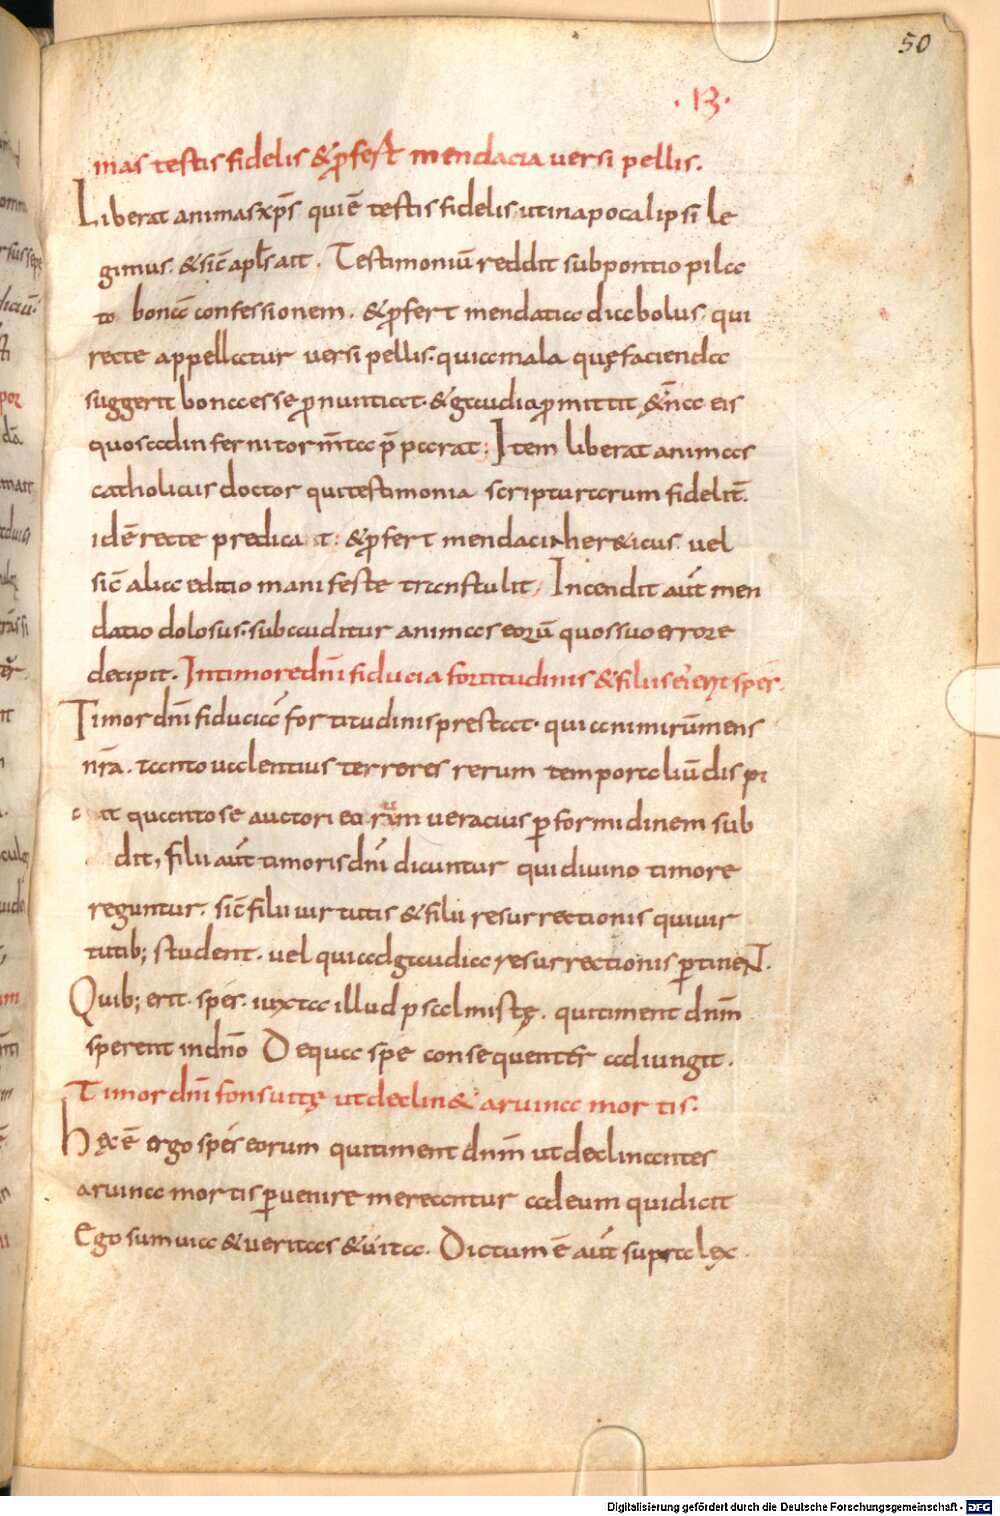 50
·13·
mas testis fidelis & ꝓfert mendacia versi pellis.
Liberat animas xp̄s qui ē testis fidelis ut in apocalipsi le
gimus. & sic̄ apl̄s ait. Testimoniū reddit sub pontio pila
to bona confessionem. & ꝓfert mendatia diabolus. qui
recte appellatur versi pellis. quia mala quę facienda
suggerit bona esse ꝓnuntiat. & gaudia ꝓmittit &
quos ad inferni torm̄ta Item liberat animas
catholicus doctor qui testimonia scripturarum fidelit̄
idē recte predicat: & ꝓfert mendacia her&icus vel
sic̄ alia editio manifeste transtulit, Incendit aut̄ men
datio dolosus. sub auditur animas eorū quos suo errore
decipit. In timore dn̄i fiducia fortitudinis & filiis ei' erit spes.
Timor dn̄i fiduciā fortitudinis prestat. quia nimirū mens
nr̄a. tanto valentius terrores rerum temporaliū dispi
cit quanto se auctori earum veracius ꝑ formidinem sub
dit, filii aut̄ timoris dn̄i dicuntur qui divino timore
reguntur. sic̄ filii virtutis & filii resurrectionis qui vir
tutib; student. vel qui ad gaudia resurrectionis ꝑtineNT.
Quib; erit. spes. iuxta illud psalmistę. qui timent dnm̄
sperent in dn̄o De qua spe consequenter adiungit.
Timor dn̄i fons vitę ut declin& a ruina mortis.
Hęc ē ergo spes eorum qui timent dnm̄ ut declinantes
a ruina mortis ꝑvenire mereantur ad eum qui dicit
Ego sum via & veritas & vita. Dictum ē aut̄ supra lex
Digitalisierung gefördert durch die Deutsche Forschungsgemeinschaft - DFG